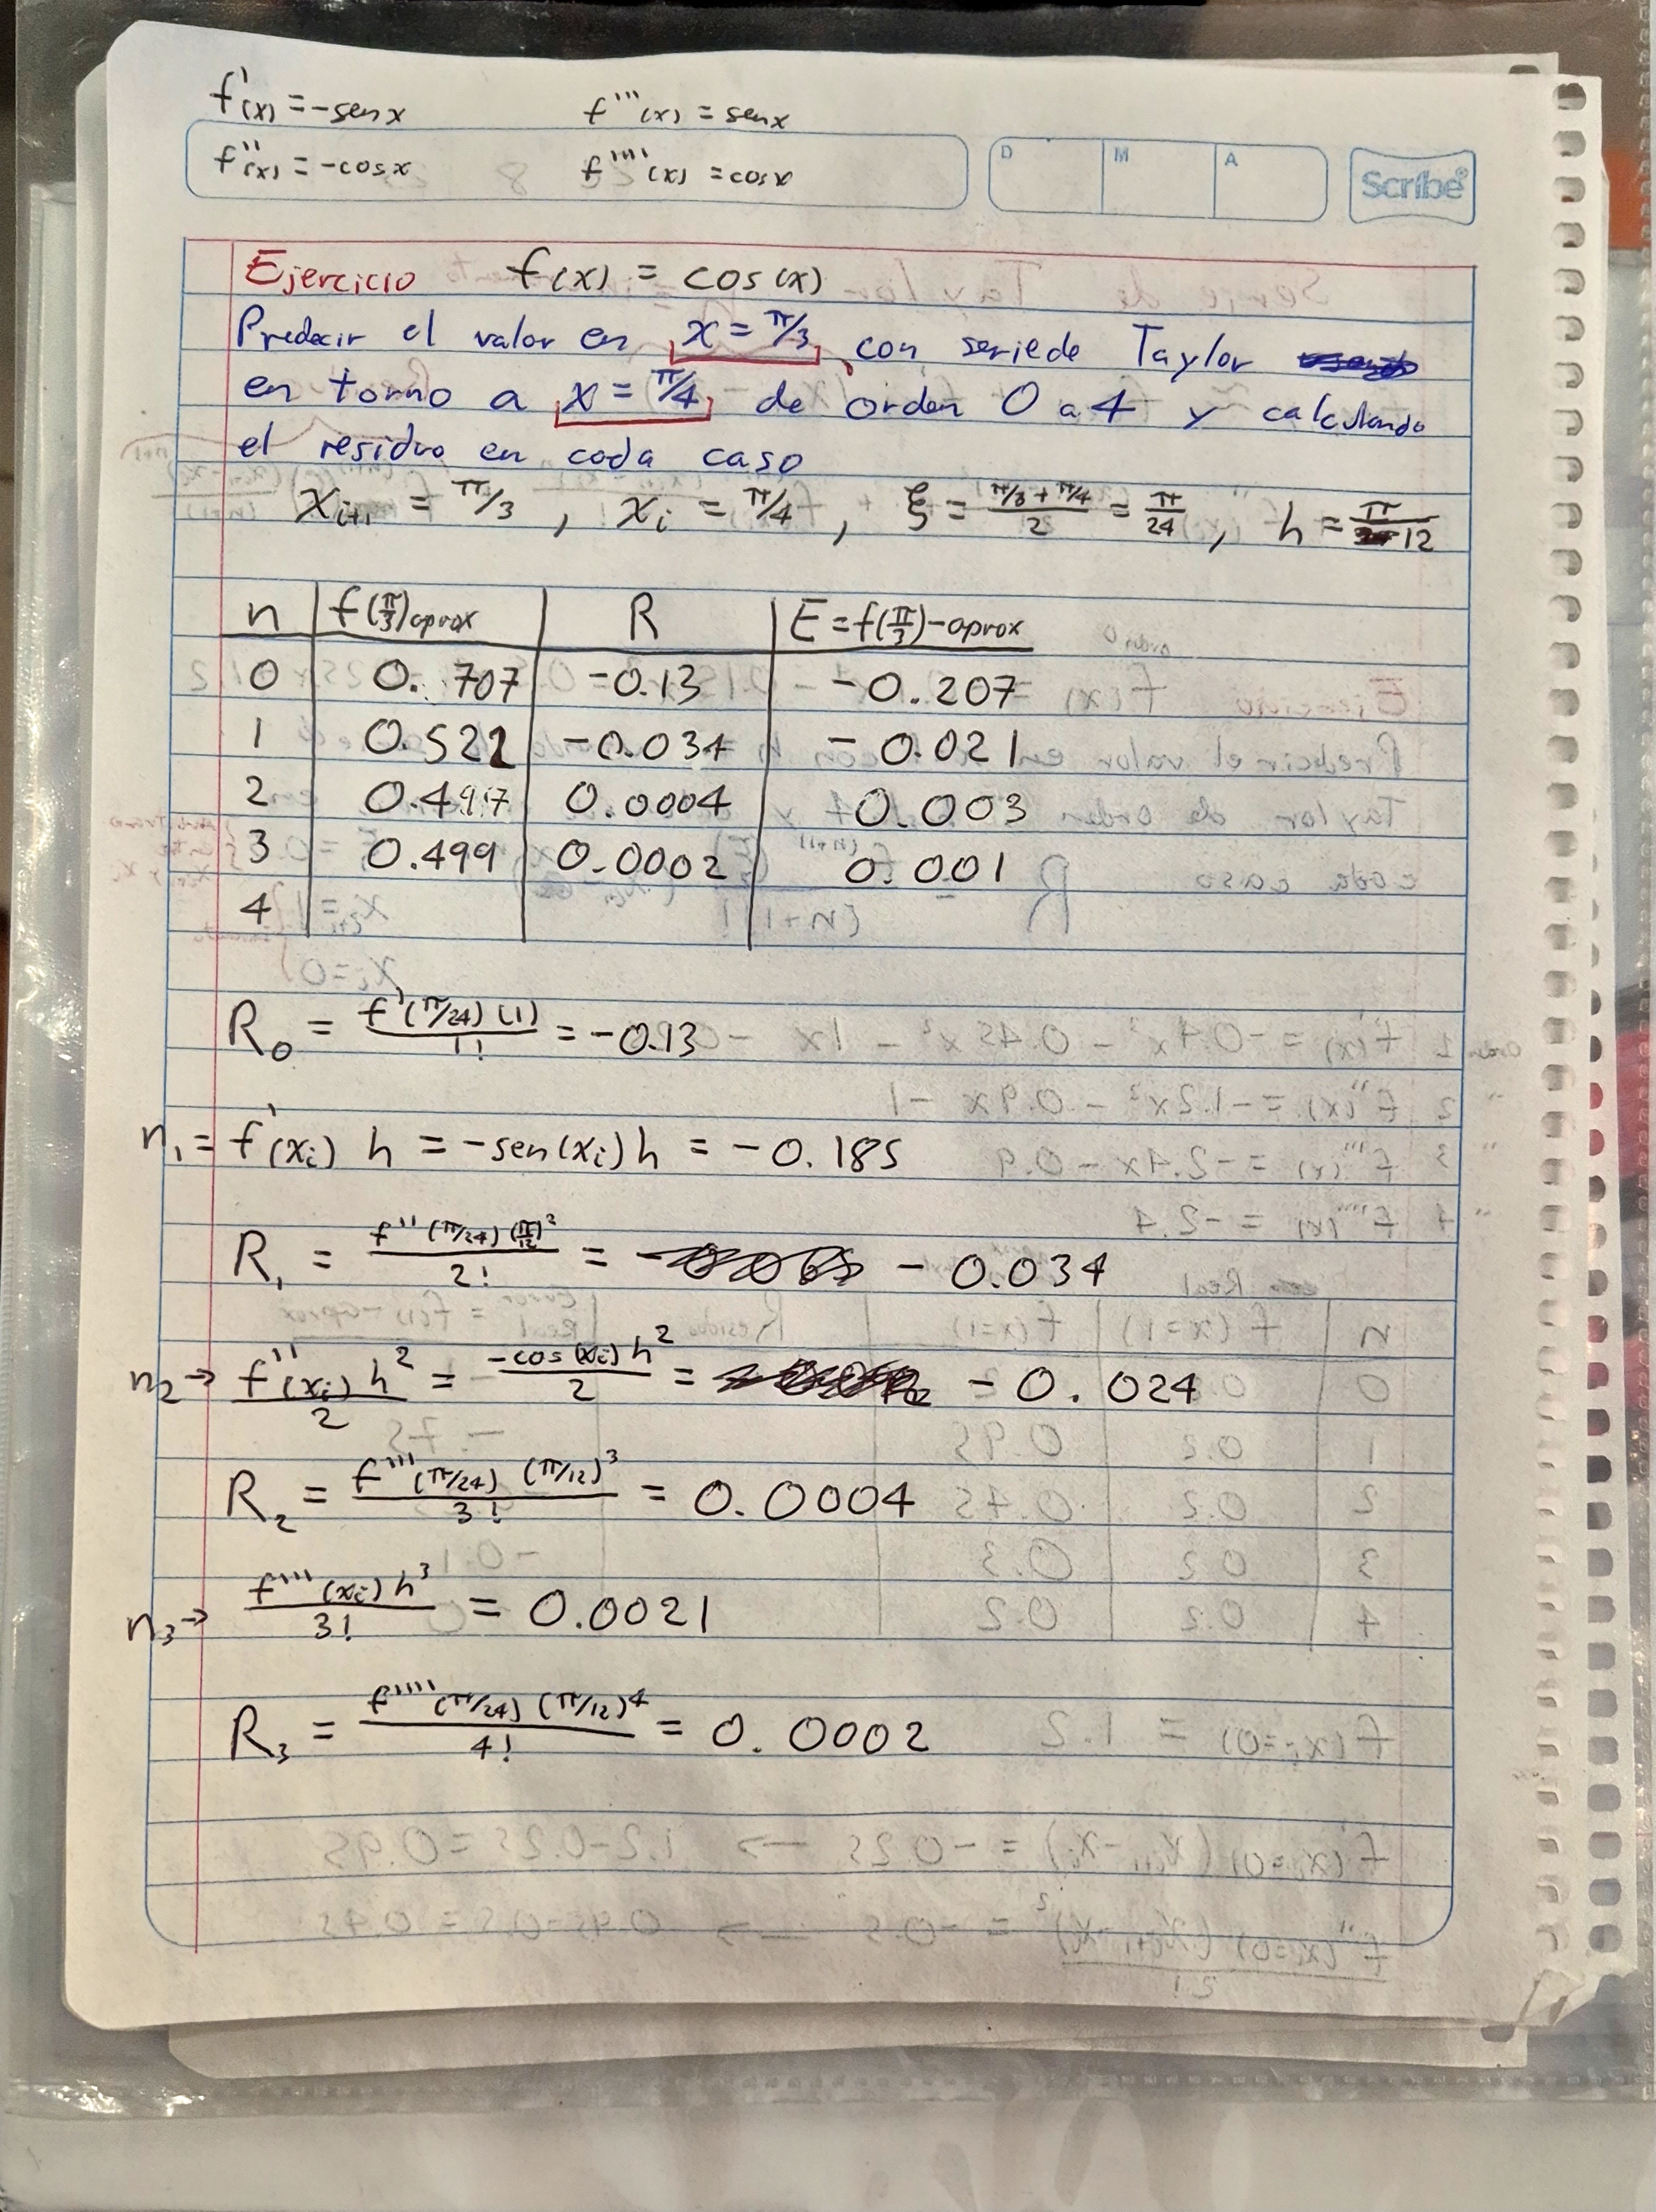 f'(x) = -sen x f'''(x) = sen x
f''(x) = -cos x f''''(x) = cos x
D M A Scribe®
Ejercicio f(x) = cos(x)
Predecir el valor en x = π/3 con serie de Taylor
en torno a x = π/4 de orden 0 a 4 y calculando
el residuo en cada caso
x_{i+1} = π/3 , x_i = π/4 , ξ = (π/3 + π/4)/2 = π/24 , h = π/12
n f(π/3)aprox R E = f(π/3) - aprox
0 0.707 -0.13 -0.207
1 0.522 -0.034 -0.021
2 0.497 0.0004 0.003
3 0.499 0.0002 0.001
4
R₀ = f'(π/24)(1)/1! = -0.13
n₁ = f'(x_i) h = -sen(x_i) h = -0.185
R₁ = f''(π/24)(π/12)²/2! = -0.034
n₂ → f''(x_i) h²/2 = -cos(x_i) h²/2 = -0.024
R₂ = f'''(π/24) (π/12)³/3! = 0.0004
n₃ → f''''(x_i) h³/3! = 0.0021
R₃ = f'''''(π/24) (π/12)⁴/4! = 0.0002